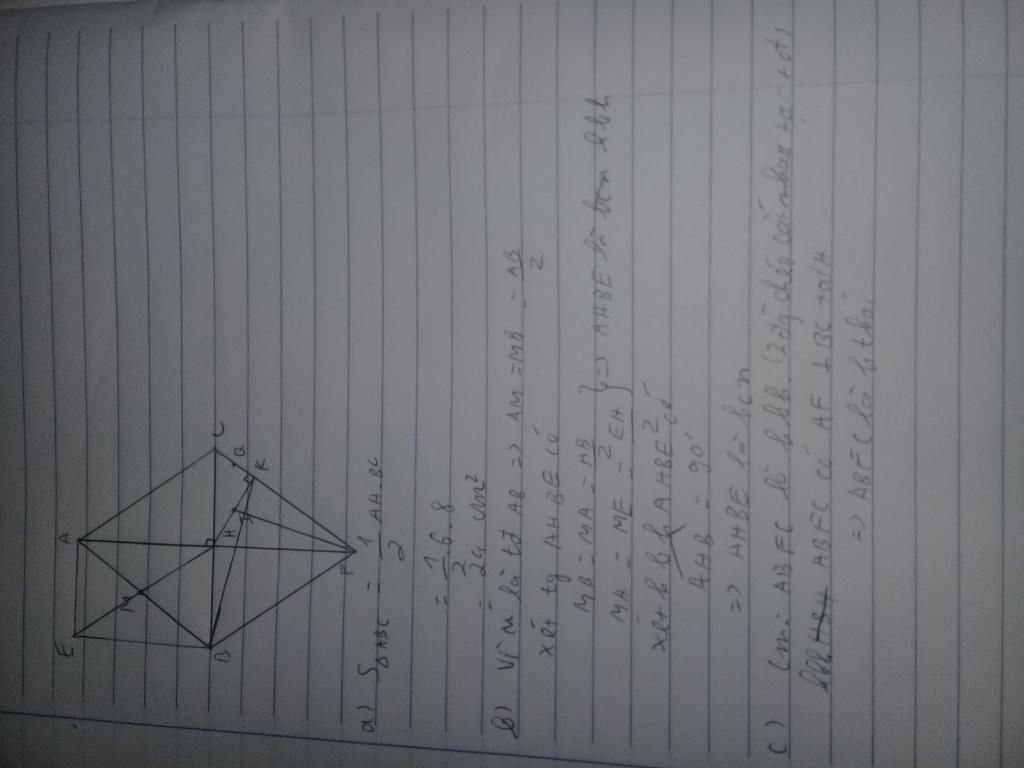 E
A
M
B
H
C
Q
K
F
a) S ΔABC = 1/2 AH.BC
= 1/2 6.8
= 24 cm²
b) Vì M là tđ AB => AM = MB = AB/2
xét tg AHBE có
MB = MA = AB/2
MH = ME = EH/2 } => AHBE là hbh
xét hbh AHBE có
AHB = 90°
=> AHBE là hcn
c) Cmi ABFC là hbh (2 đg chéo cắt nhau tại tđ)
hbh ABFC có AF ⊥ BC tại H
=> ABFC là hthoi